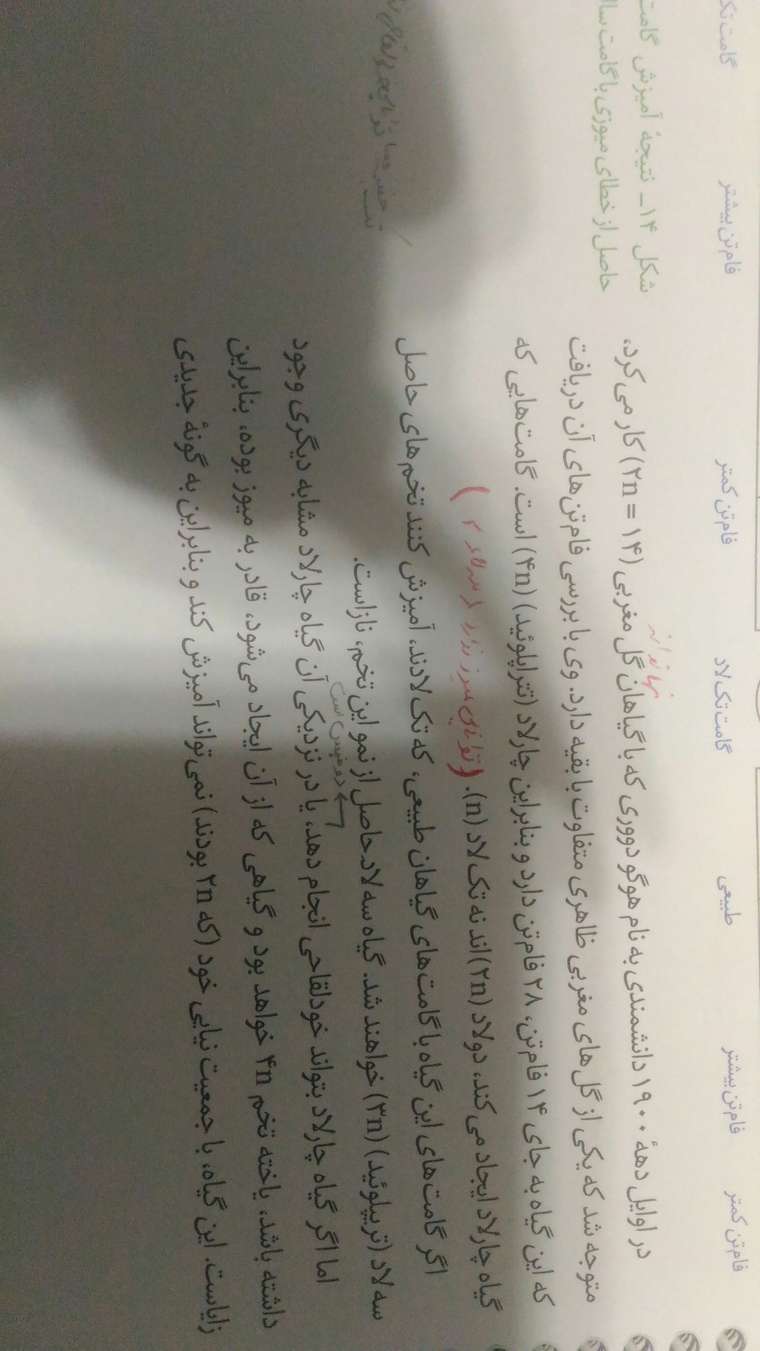 گامت تک
فام‌تن بیشتر
فام‌تن کمتر
گامت تک‌لاد
طبیعی
فام‌تن بیشتر
فام‌تن کمتر
شکل ۱۴_ نتیجهٔ آمیزش گامت
حاصل از خطای میوزی با گامت سا
در اوایل دههٔ ۱۹۰۰ دانشمندی به نام هوگو دووری که با گیاهان گل مغربی (۲n = ۱۴) کار می‌کرد،
متوجه شد که یکی از گل‌های مغربی ظاهری متفاوت با بقیه دارد. وی با بررسی فام‌تن‌های آن دریافت
که این گیاه به جای ۱۴ فام‌تن، ۲۸ فام‌تن دارد و بنابراین چارلاد (تتراپلوئید) (۴n) است. گامت‌هایی که
گیاه چارلاد ایجاد می‌کند، دولاد (۲n)اند نه تک‌لاد (n).
اگر گامت‌های این گیاه با گامت‌های گیاهان طبیعی، که تک‌لادند، آمیزش کنند تخم‌های حاصل
سه‌لاد (تریپلوئید) (۳n) خواهند شد. گیاه سه‌لاد حاصل از نمو این تخم، نازاست.
اما اگر گیاه چارلاد بتواند خودلقاحی انجام دهد، یا در نزدیکی آن گیاه چارلاد مشابه دیگری وجود
داشته باشد، یاخته تخم ۴n خواهد بود و گیاهی که از آن ایجاد می‌شود، قادر به میوز بوده، بنابراین
زایاست. این گیاه، با جمعیت نیایی خود (که ۲n بودند) نمی‌تواند آمیزش کند و بنابراین به گونهٔ جدیدی